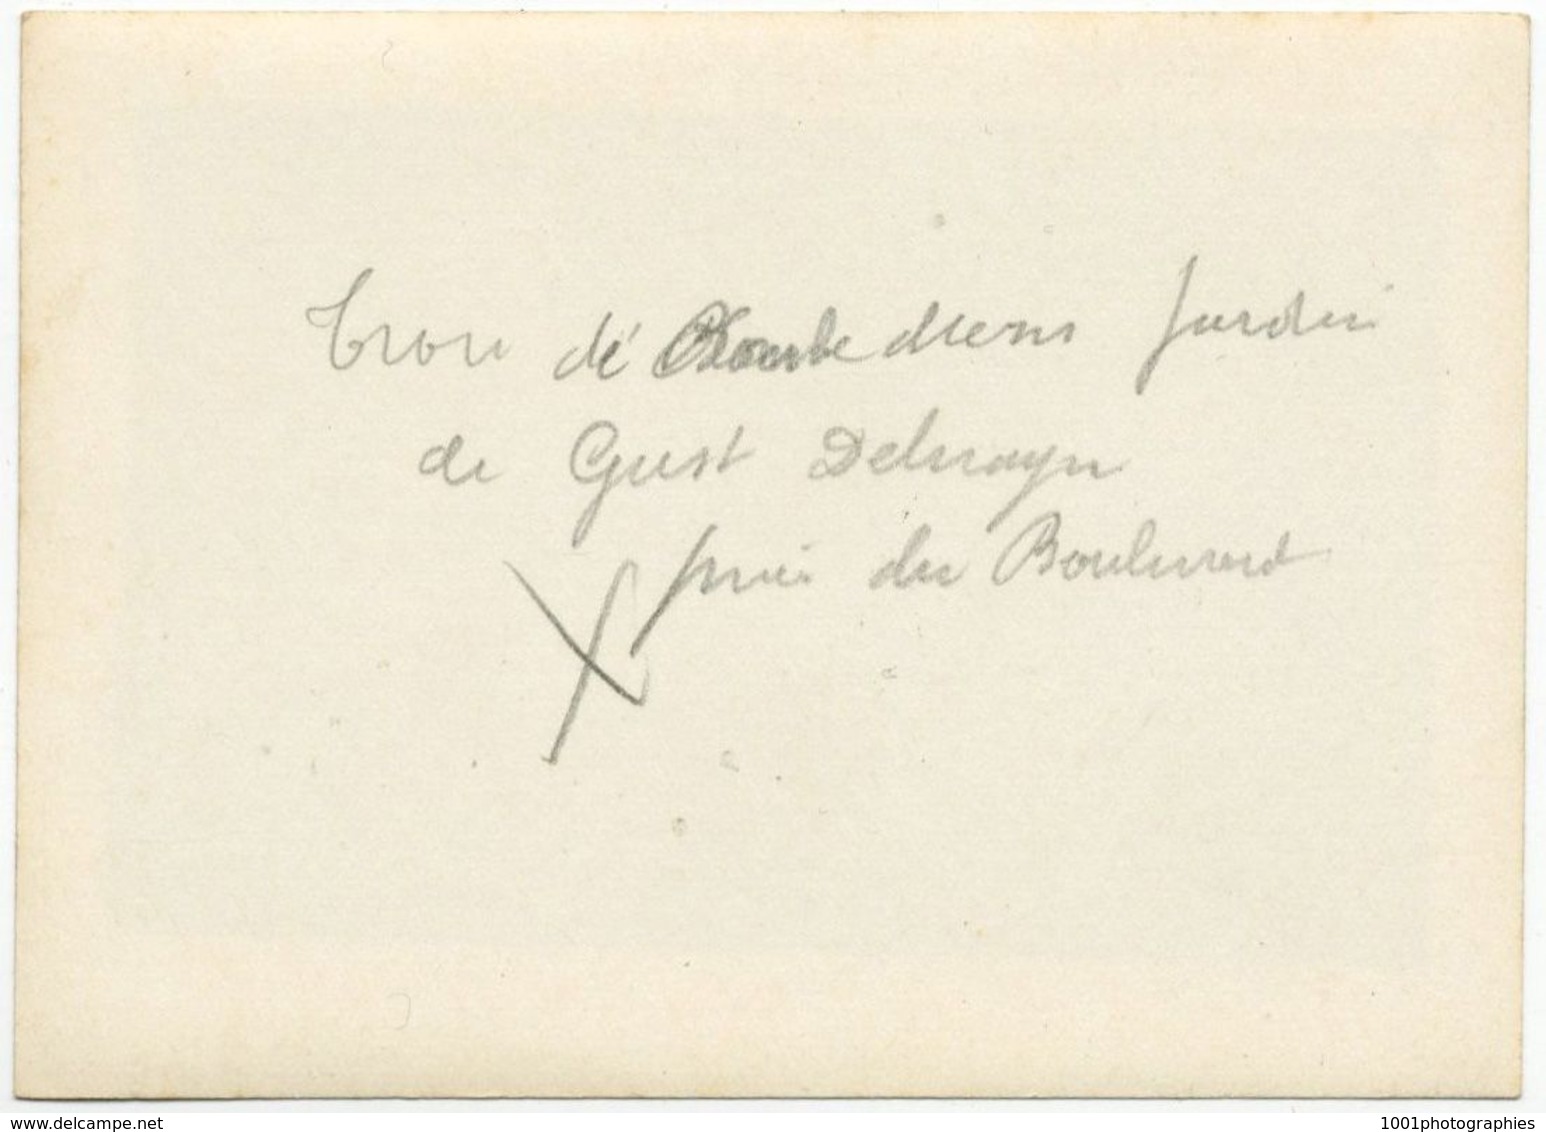 Trou de Bombe dans Jardin
de Gust Delnayn
près du Boulevard
www.delcampe.net
1001photographies